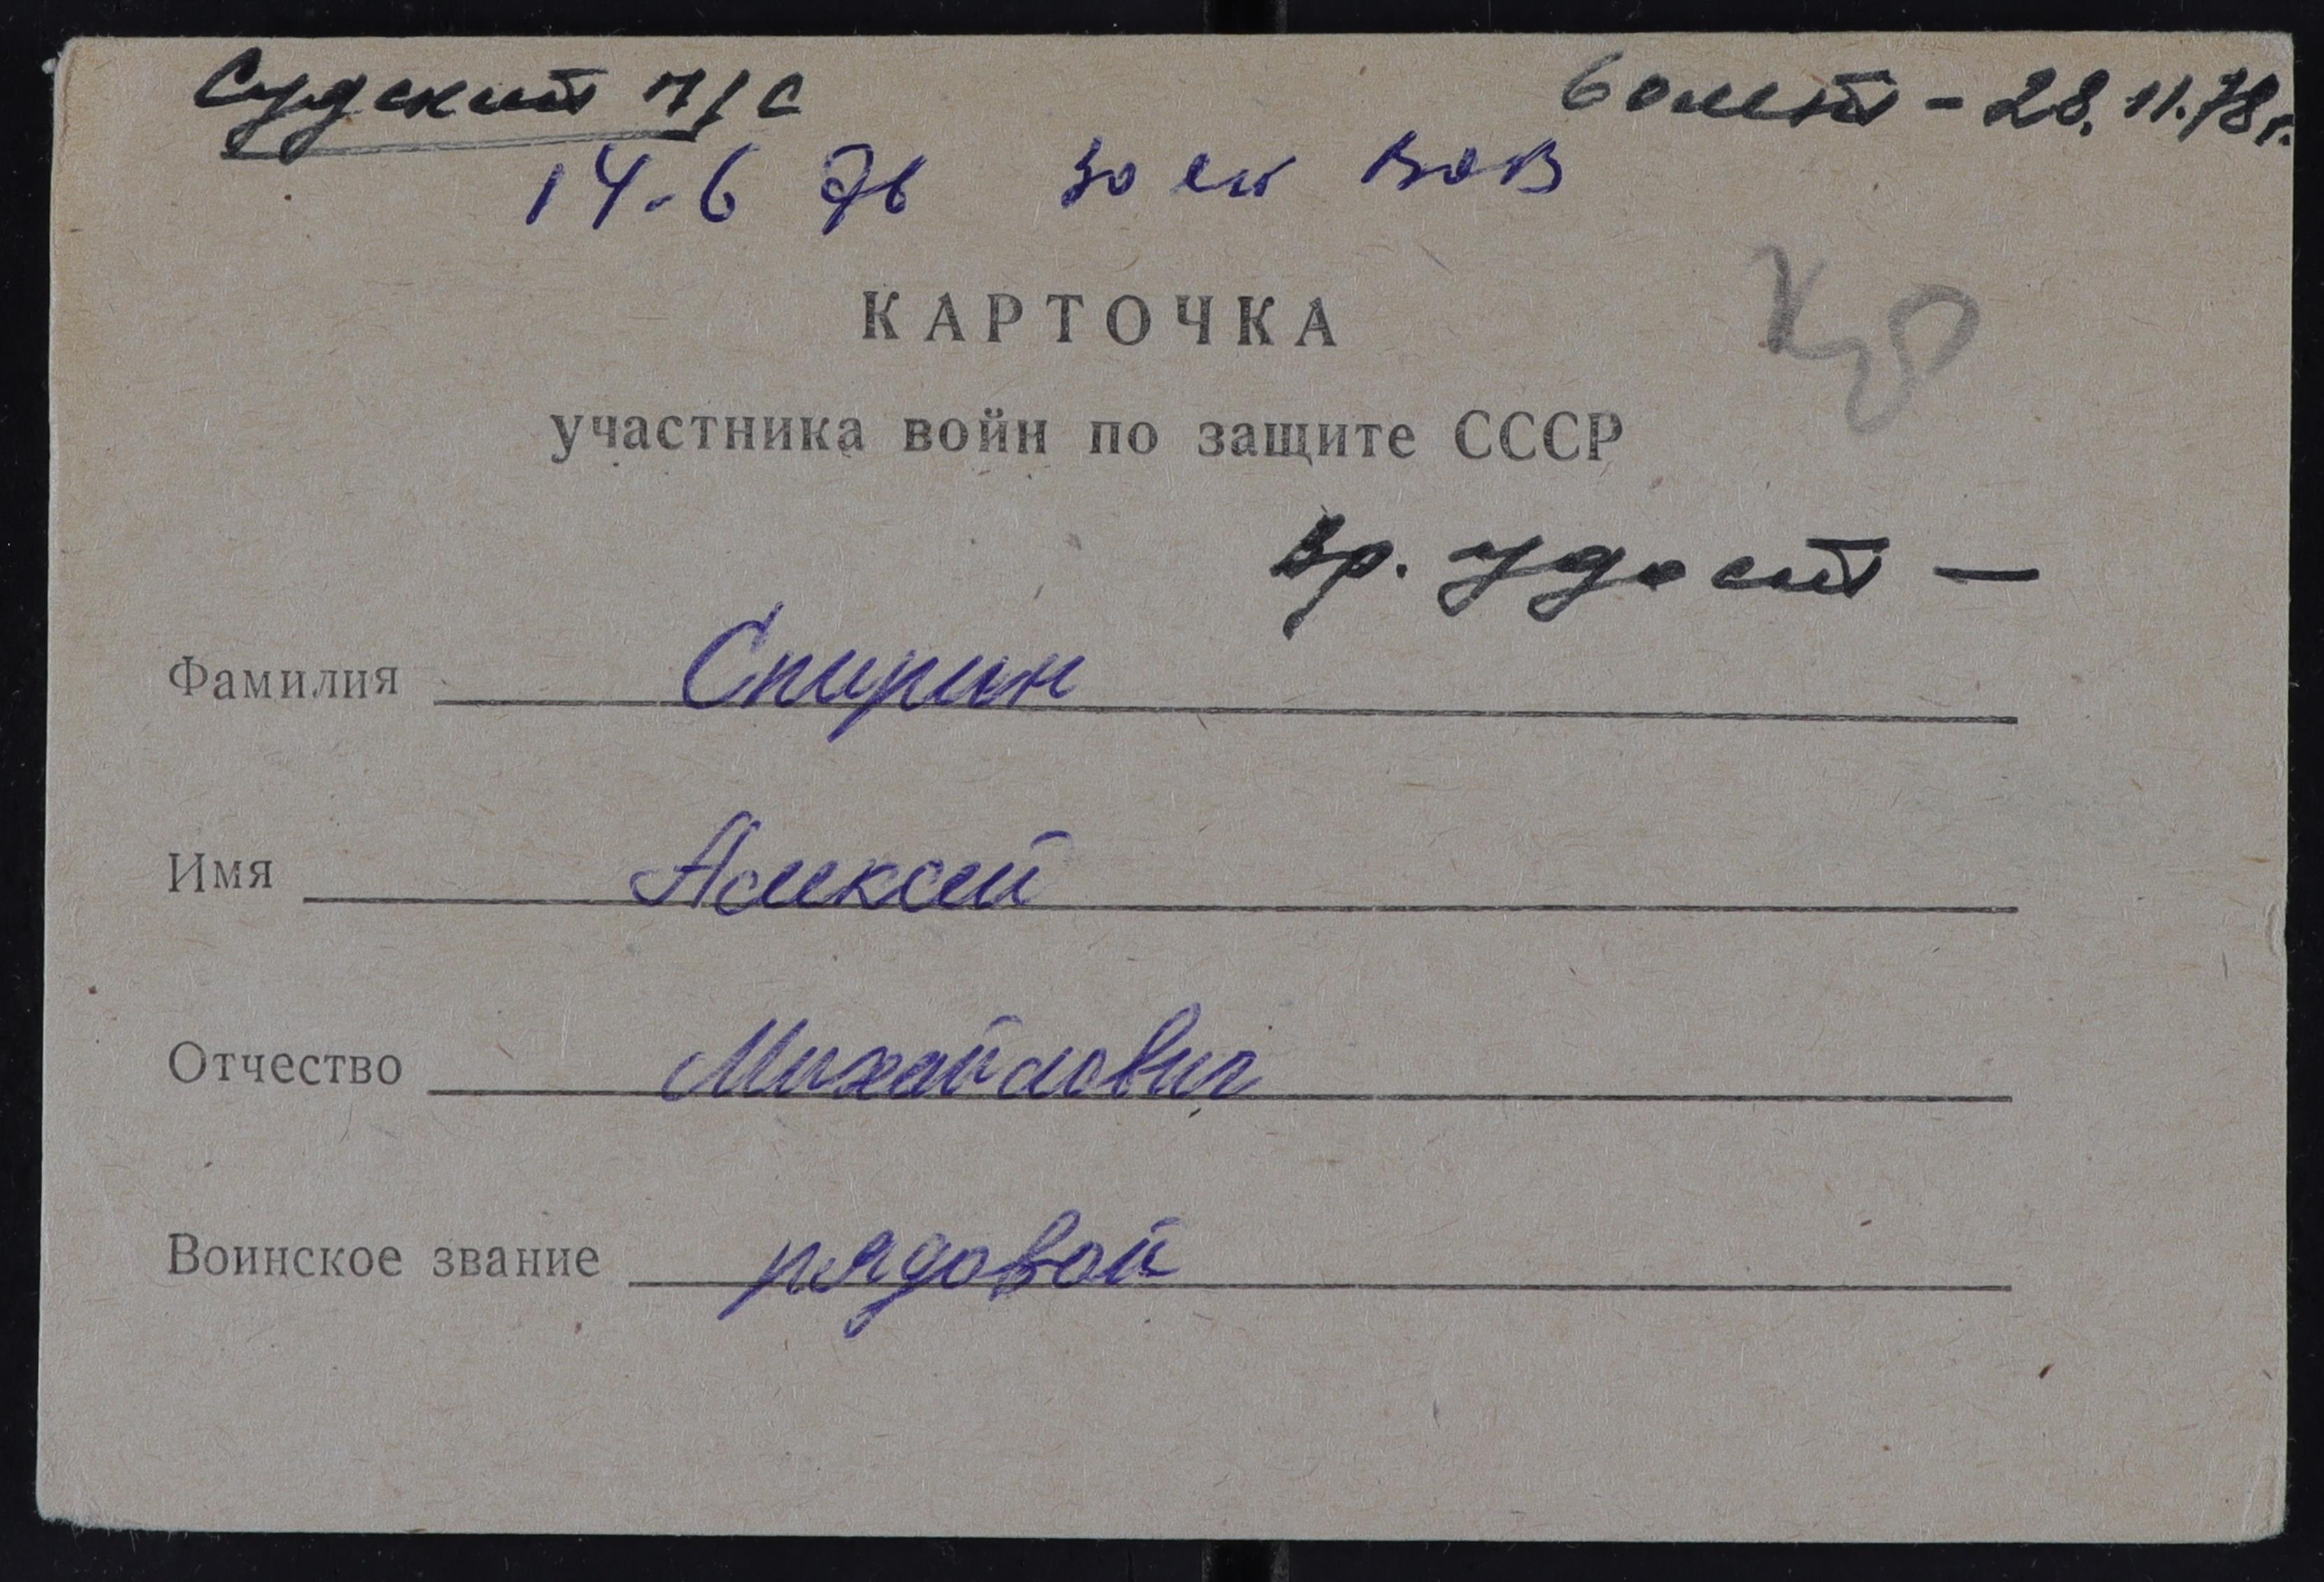 Судский п/с
60 лет - 28.11.78г.
14-6 76 30 лет ВОВ
КАРТОЧКА
участника войн по защите СССР
вр. удост —
Фамилия Спирин
Имя Алексей
Отчество Михайлович
Воинское звание рядовой